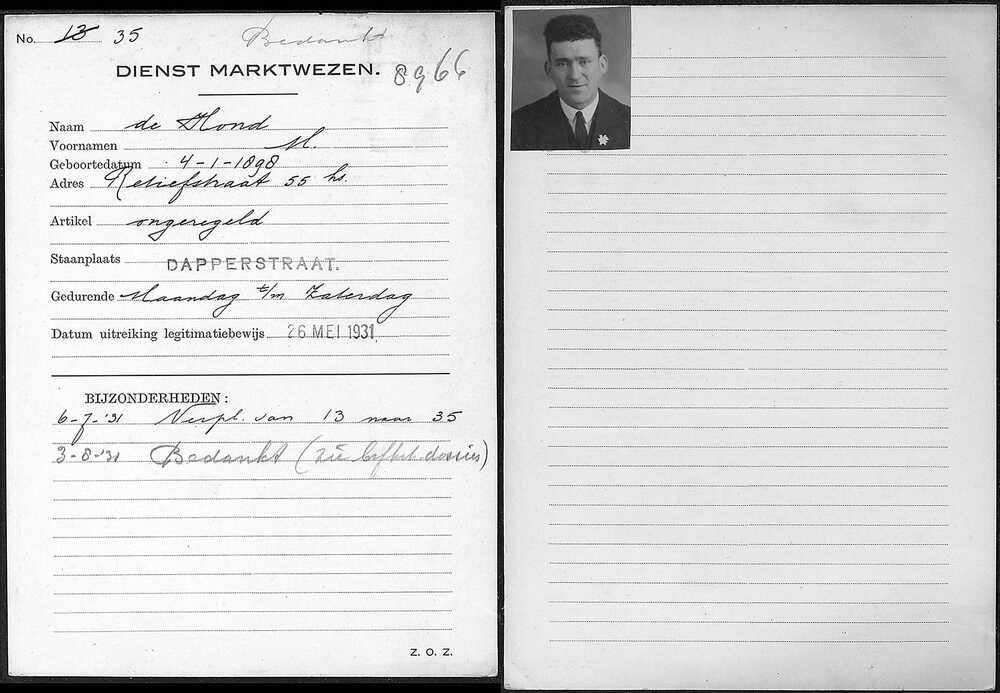 No. 13 35
Bedankt
DIENST MARKTWEZEN.
8966
Naam de Hond
Voornamen M.
Geboortedatum 4-1-1898
Adres Retiefstraat 55 hs.
Artikel ongeregeld
Staanplaats DAPPERSTRAAT.
Gedurende Maandag t/m Zaterdag
Datum uitreiking legitimatiebewijs 26 MEI 1931
BIJZONDERHEDEN:
6-7-'31 Verpl. van 13 naar 35
3-8-'31 Bedankt (zie dossier)
Z. O. Z.